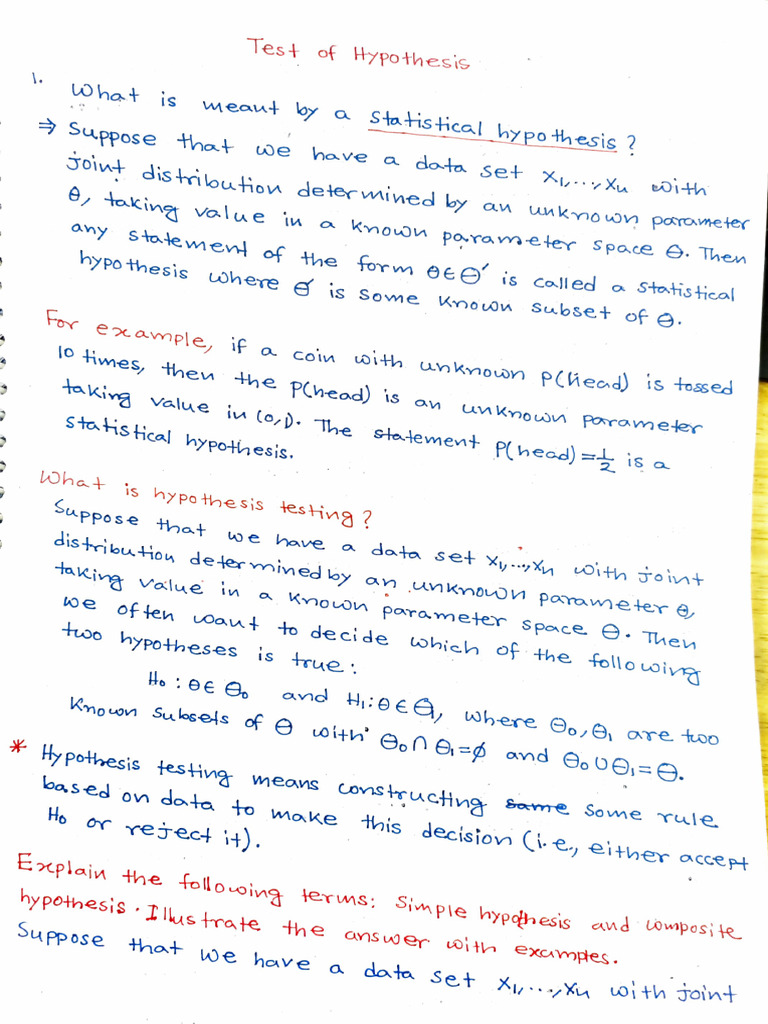 Test of Hypothesis
1. What is meant by a statistical hypothesis?
⇒ Suppose that we have a data set X₁,...,Xₙ with
joint distribution determined by an unknown parameter
θ, taking value in a known parameter space Θ. Then
any statement of the form θ∈Θ′ is called a statistical
hypothesis where Θ′ is some known subset of Θ.
For example, if a coin with unknown P(head) is tossed
10 times, then the P(head) is an unknown parameter
taking value in (0,1). The statement P(head)=1/2 is a
statistical hypothesis.
What is hypothesis testing?
Suppose that we have a data set X₁,...,Xₙ with joint
distribution determined by an unknown parameter θ,
taking value in a known parameter space Θ. Then
we often want to decide which of the following
two hypotheses is true:
H₀ : θ∈Θ₀ and H₁:θ∈Θ₁, where Θ₀,Θ₁ are two
known subsets of Θ with Θ₀∩Θ₁=ϕ and Θ₀∪Θ₁=Θ.
* Hypothesis testing means constructing same some rule
based on data to make this decision (i.e., either accept
H₀ or reject it).
Explain the following terms: Simple hypothesis and composite
hypothesis. Illustrate the answer with examples.
Suppose that we have a data set X₁,...,Xₙ with joint